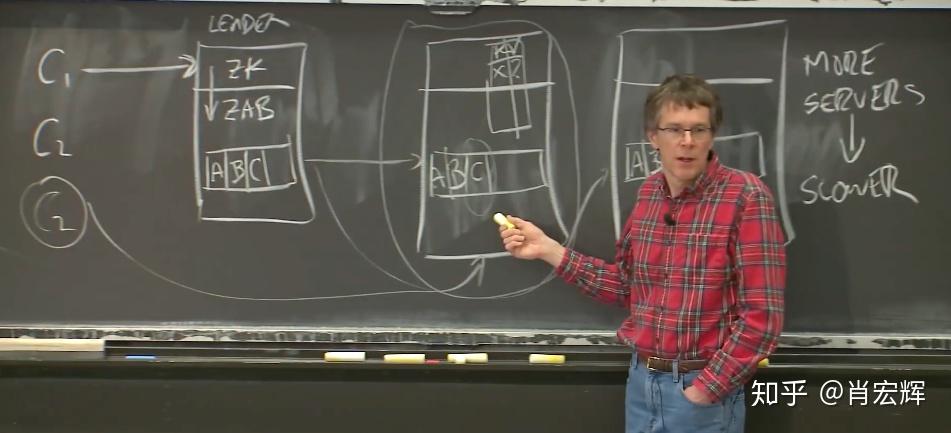 LEADER
C1
ZK
ZAB
A B C
C2
C2
A B C
A B
MORE
SERVERS
SLOWER
知乎 @肖宏辉